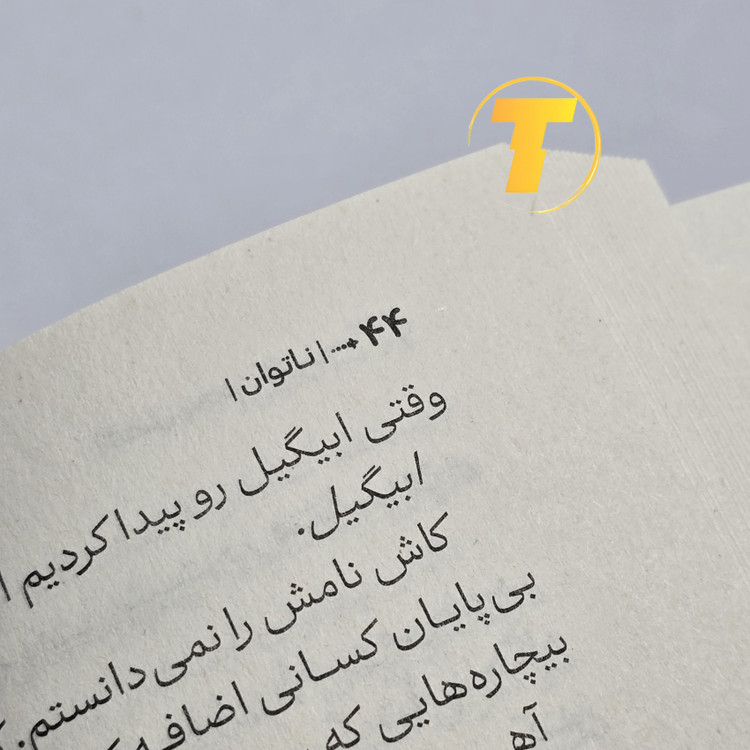 T
۴۴ | ناتوان |
وقتی ابیگیل رو پیدا کردیم
ابیگیل.
کاش نامش را نمی‌دانستم.
بی‌پایان کسانی اضافه
بیچاره‌هایی که
آهی